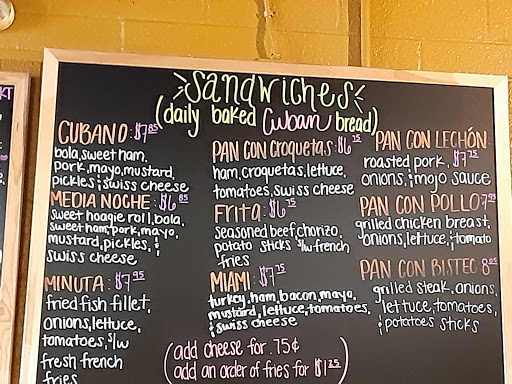 Sandwiches
(daily baked Cuban bread)
CUBANO: $7.85
bola, sweet ham,
pork, mayo, mustard,
pickles & swiss cheese
MEDIA NOCHE: $6.85
sweet hoagie roll, bola,
sweet ham, pork, mayo,
mustard, pickles, &
swiss cheese
MINUTA: $7.95
fried fish fillet,
onions, lettuce,
tomatoes, s/w
fresh french
fries
PAN CON Croquetas: $6.75
ham, croquetas, lettuce,
tomatoes, swiss cheese
Frita: $6.75
seasoned beef, chorizo,
potato sticks s/w french
fries
MIAMI: $7.75
turkey, ham, bacon, mayo,
mustard, lettuce, tomatoes,
& swiss cheese
(add cheese for .75¢
add an order of fries for $1.25)
PAN CON LECHÓN:
roasted pork, $7.75
onions, & mojo sauce
PAN CON POLLO: 7.95
grilled chicken breast,
onions, lettuce, & tomato
PAN CON BISTEC:
grilled steak, onions,
lettuce, tomatoes,
& potatoes sticks
KT